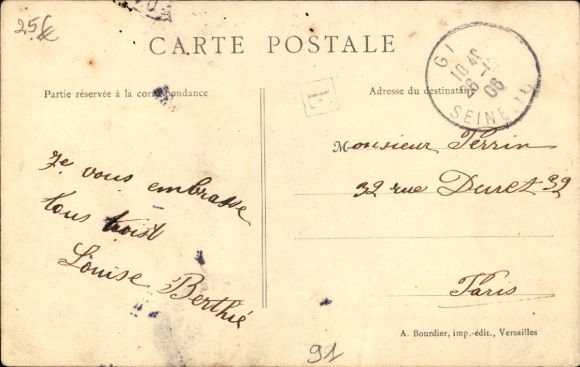 25€
CARTE POSTALE
Partie réservée à la correspondance
Adresse du destinataire
L
10 45
06
SEINE
Je vous embrasse
tous troist
Louise Berthié
Monsieur Perrin
32 rue Duret 32
Paris
91
A. Bourdier, imp.-édit., Versailles